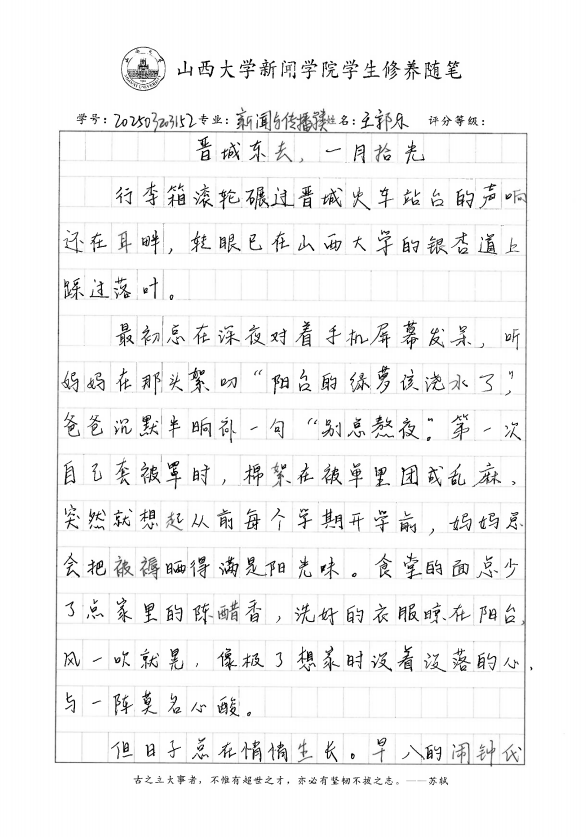 山西大学新闻学院学生修养随笔
学号：202503203152 专业：新闻与传播类 姓名：王郭乐 评分等级：
晋城东去，一月拾光
行李箱滚轮碾过晋城火车站台的声响
还在耳畔，转眼已在山西大学的银杏道上
踩过落叶。
最初总在深夜对着手机屏幕发呆，听
妈妈在那头絮叨“阳台的绿萝该浇水了”，
爸爸沉默半晌补一句“别总熬夜”。第一次
自己套被罩时，棉絮在被单里团成乱麻，
突然就想起从前每个学期开学前，妈妈总
会把被褥晒得满是阳光味。食堂的面总少
了点家里的陈醋香，洗好的衣服晾在阳台，
风一吹就晃，像极了想家时没着没落的心，
与一阵莫名心酸。
但日子总在悄悄生长。早八的闹钟代
古之立大事者，不惟有超世之才，亦必有坚韧不拔之志。——苏轼